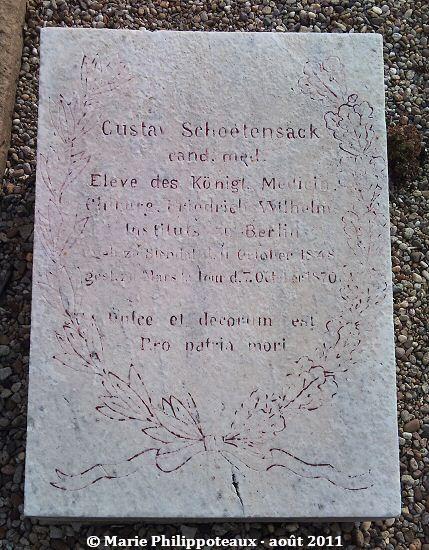 Gustav Schoetensack
cand. med.
Eleve des Königl. Medicin.
Chirurg. Friedrich Wilhelm
Instituts zu Berlin
geb. zu Stendal d. October 1848
gest. zu Mars la Tour d. 7. October 1870.
Dulce et decorum est
Pro patria mori
© Marie Philippoteaux - août 2011